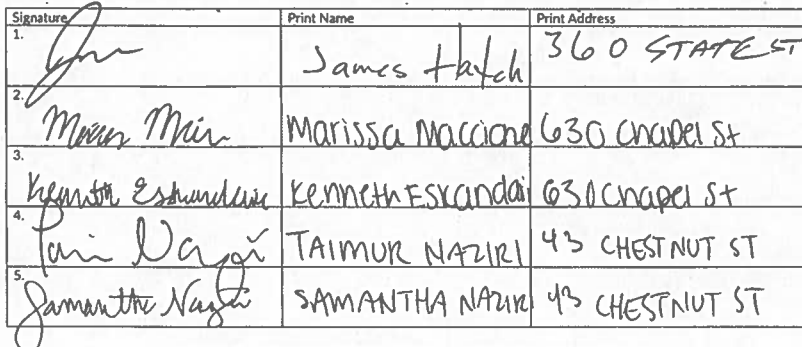 Signature Print Name Print Address
1. James Hatch 360 STATE ST
2. Marissa Maccione 630 Chapel St
3. Kenneth Eskandari Kenneth Eskandai 630 Chapel St
4. TAIMUR NAZIRI 43 CHESTNUT ST
5. Samantha Naziri SAMANTHA NAZIRI 43 CHESTNUT ST